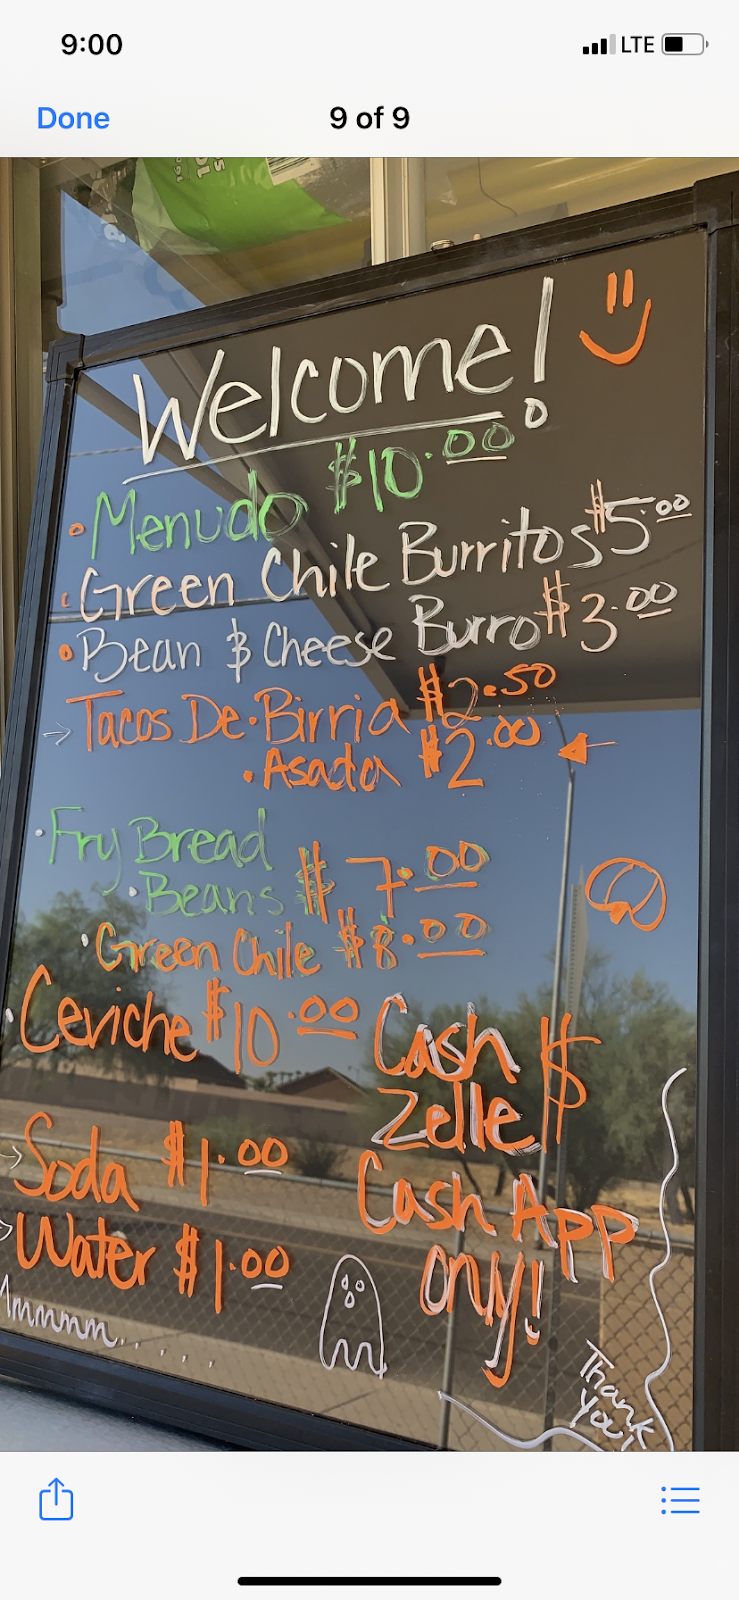 9:00
LTE
Done
9 of 9
Welcome!
Menudo $10.00
Green Chile Burritos $5.00
Bean & Cheese Burro $3.00
Tacos De • Birria $2.50
• Asada $2.00
Fry Bread
• Beans $7.00
• Green Chile $8.00
Ceviche $10.00
Cash $
Zelle
Cash App
only!
Soda $1.00
Water $1.00
Mmmmm......
Thank
you!